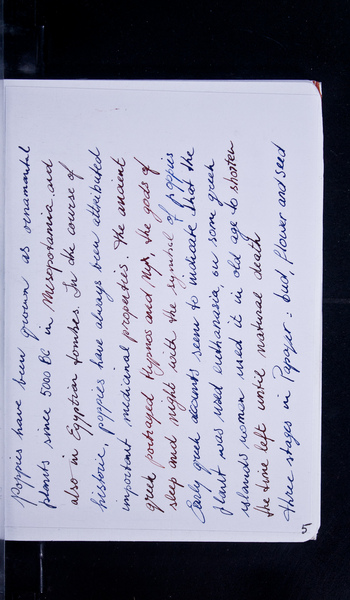 Poppies have been grown as ornamental
plants since 5000 BC in Mesopotamia and
also in Egyptian tombes. In the course of
historie, poppies have always been attributed
important medicinal properties. The ancient
greek portraged Hypnos and Nyx, the gods of
sleep and night with the symbol of poppies
Early greek accounts seem to indicate that the
plant was used euthanasia, on some greek
islands women used it in old age to shorten
the time left until natural death
three stages in Papaver: bud, flower and seed
5